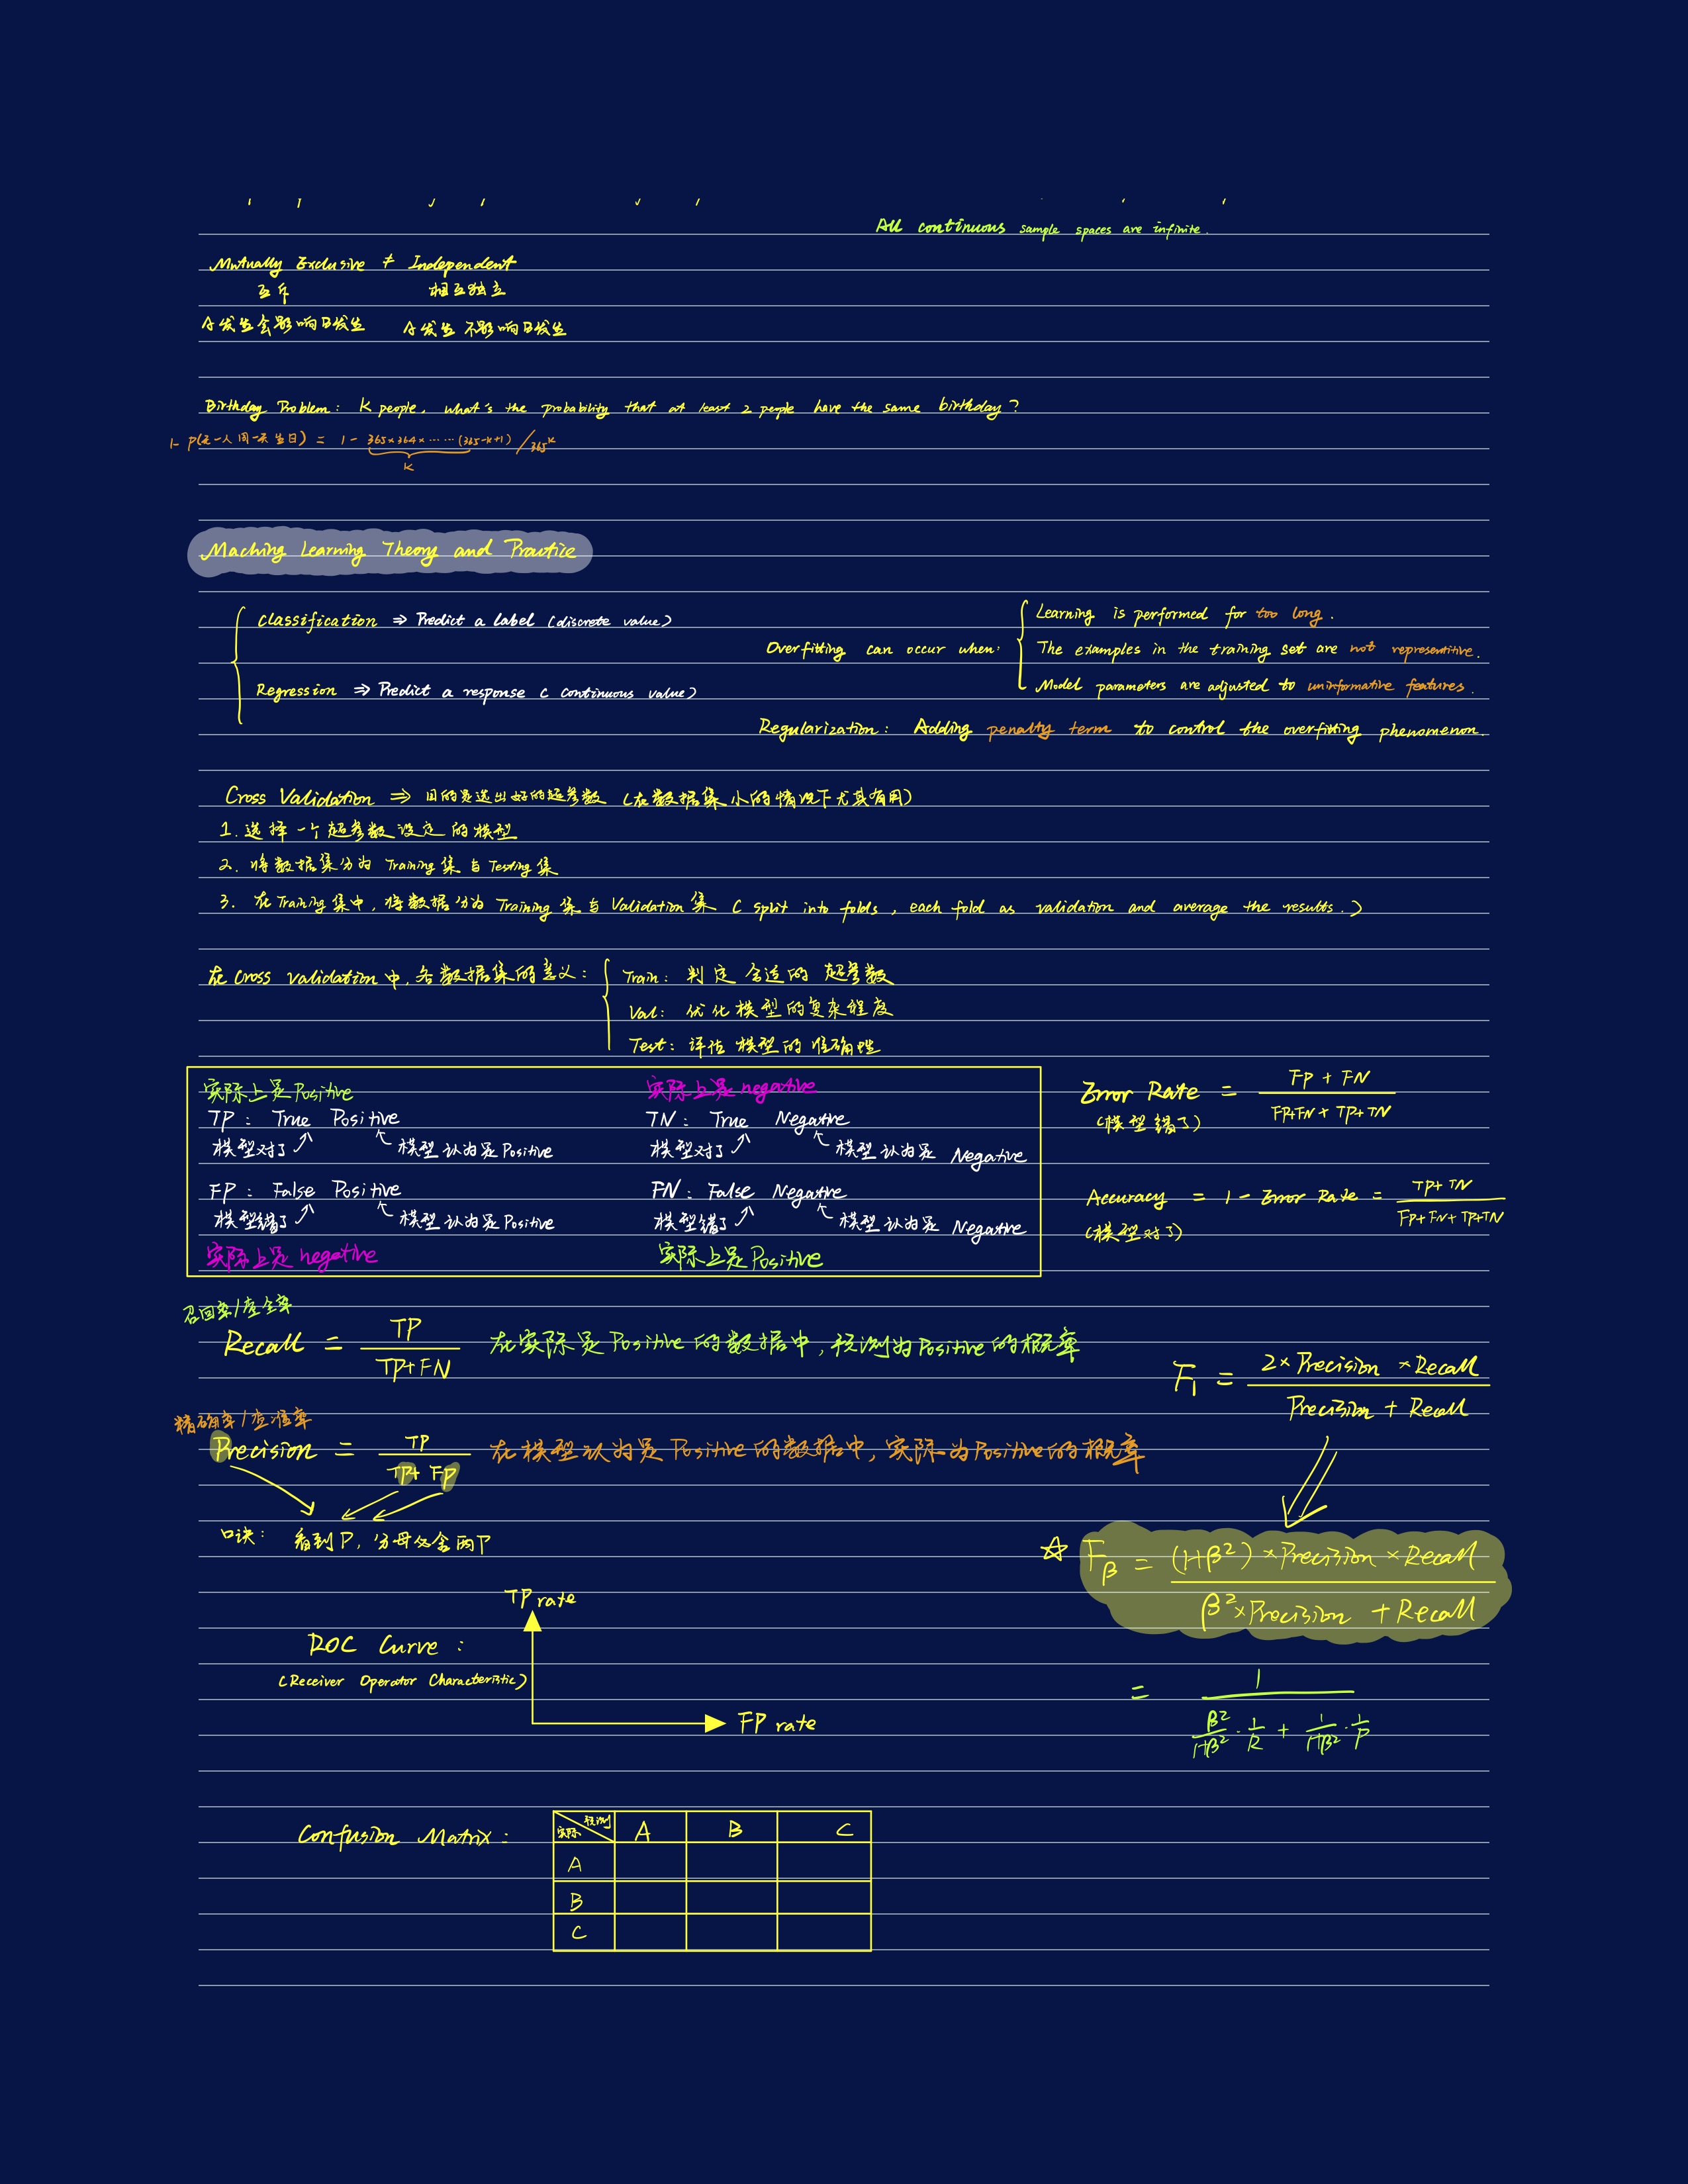 All continuous sample spaces are infinite.
Mutually Exclusive ≠ Independent
互斥 相互独立
A发生会影响B发生 A发生不影响B发生
Birthday Problem: K people, what's the probability that at least 2 people have the same birthday?
1- P(无一人同一天生日) = 1 - 365×364×……(365-k+1) / 365^k
K
Maching Learning Theory and Practice
Classification ⇒ Predict a label (discrete value)
Regression ⇒ Predict a response (continuous value)
Overfitting can occur when:
Learning is performed for too long.
The examples in the training set are not representitive.
Model parameters are adjusted to uninformative features.
Regularization: Adding penalty term to control the overfitting phenomenon.
Cross Validation ⇒ 目的是选出好的超参数 (在数据集小的情况下尤其有用)
1. 选择一个超参数设定的模型
2. 将数据集分为 Training 集与 Testing 集
3. 在 Training 集中, 将数据分为 Training 集与 Validation 集 (split into folds, each fold as validation and average the results.)
在 Cross validation 中, 各数据集的意义:
Train: 判定合适的超参数
Val: 优化模型的复杂程度
Test: 评估模型的准确性
实际上是Positive 实际上是negative
TP: True Positive TN: True Negative
模型对了 模型认为是Positive 模型对了 模型认为是 Negative
FP: False Positive FN: False Negative
模型错了 模型认为是Positive 模型错了 模型认为是 Negative
实际上是negative 实际上是Positive
Error Rate = (FP + FN) / (FP+FN+TP+TN)
(模型错了)
Accuracy = 1 - Error Rate = (TP+TN) / (FP+FN+TP+TN)
(模型对了)
召回率/查全率
Recall = TP / (TP+FN) 在实际是Positive的数据中, 预测为Positive的概率
精确率/查准率
Precision = TP / (TP+FP) 在模型认为是Positive的数据中, 实际为Positive的概率
口诀: 看到P, 分母必含两P
F₁ = (2×Precision×Recall) / (Precision + Recall)
☆ Fβ = ((1+β²)×Precision×Recall) / (β²×Precision + Recall)
= 1 / (β²/(1+β²) · 1/R + 1/(1+β²) · 1/P)
TP rate
ROC Curve:
(Receiver Operator Characteristic)
FP rate
Confusion Matrix:
预测 A B C
实际
A
B
C